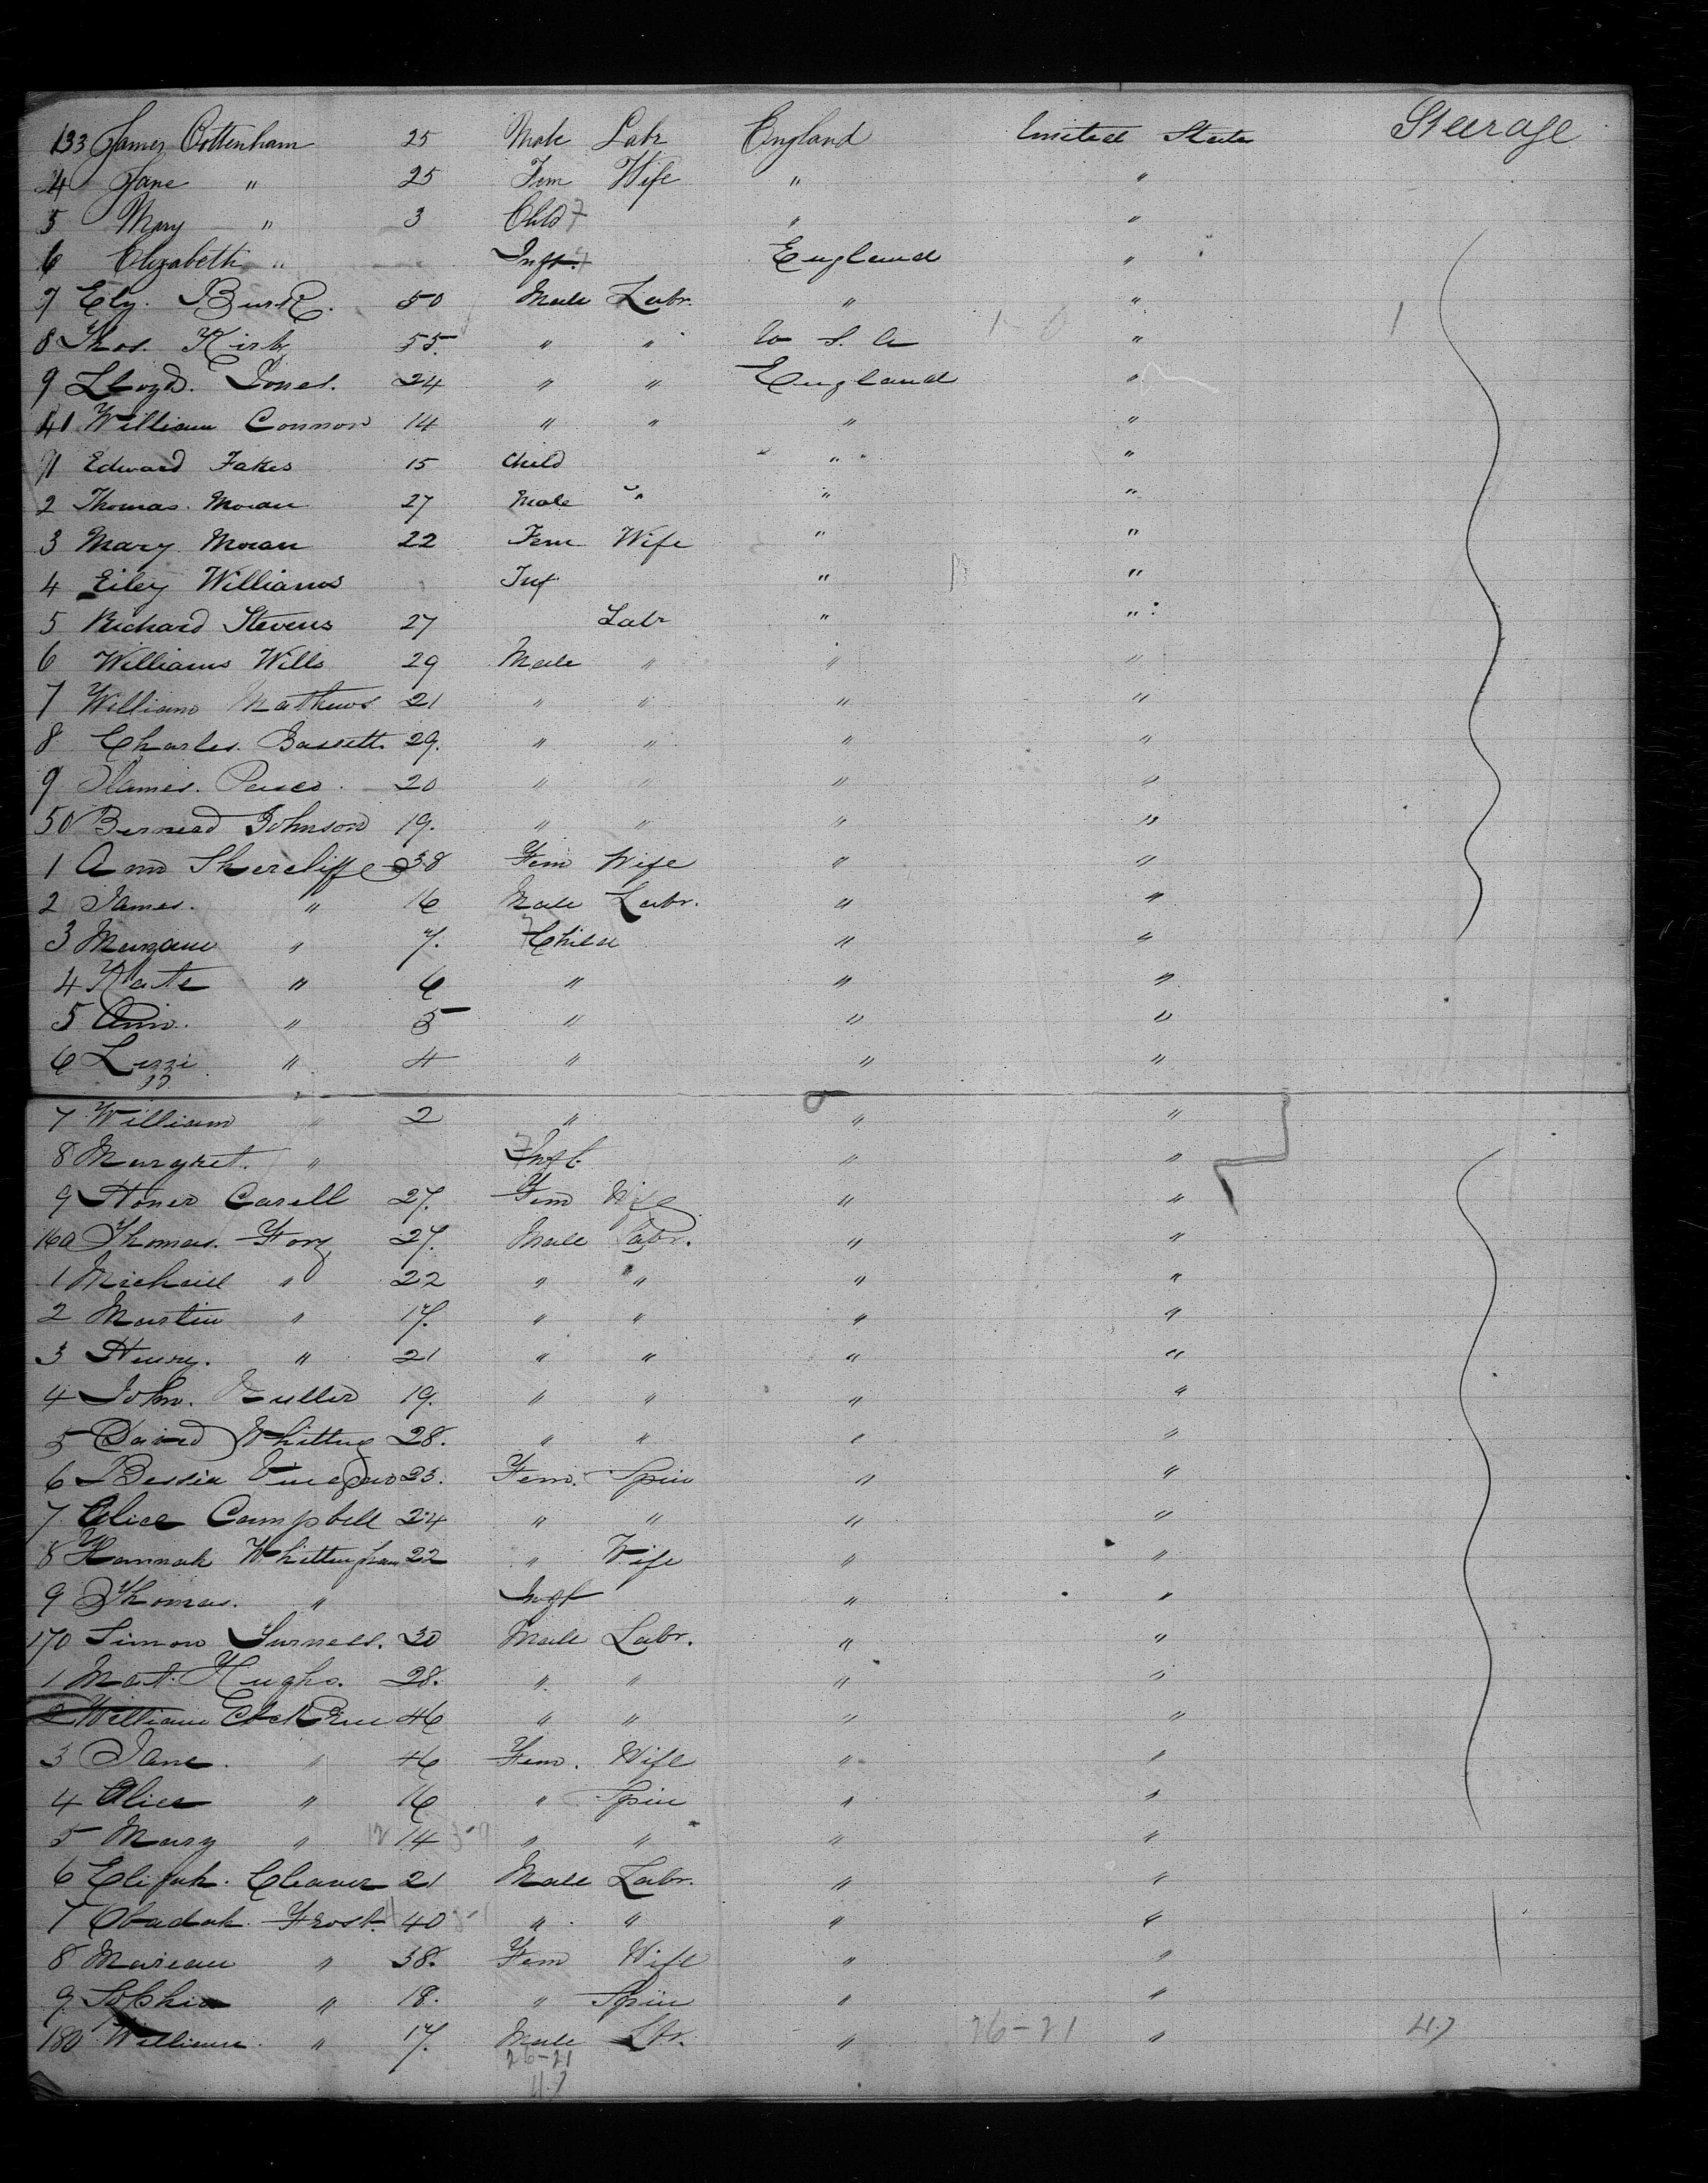 133 James Cottenham 25 Male Labr England United States Steerage
4 Jane " 25 Fem Wife " "
5 Mary " 3 Child 7 " "
6 Elizabeth " Inft. England "
7 Ely. 50 Male Labr. " "
8 Thos. Kirby 55. " " U S. A "
9 Lloyd. Jones. 24 " " England "
41 William Connor 14 " " " "
71 Edward Fakes 15 Child " "
2 Thomas. Moran 27 Male " " "
3 Mary Moran 22 Fem Wife " "
4 Eiley Williams Inf. " "
5 Richard Stevens 27 Labr " "
6 Williams Wills 29 Male " " "
7 William Mathews 21 " " " "
8 Charles. Bassett. 29. " " " "
9 James. 20 " " " "
50 Johnson 19. " " " "
1 Ann Shercliffe 38 Fem Wife " "
2 James. " 16 Male Labr. " "
3 " 7. Child " "
4 Kate " 6 " " "
5 Ann. " 5 " " "
6 " 4 " " "
7 William " 2 " " "
8 Margret. " Inft " "
9 Honer Carell 27. Fem Wife " "
160 Thomas. 27. Male Labr. " "
1 Michael " 22 " " " "
2 Martin " 17. " " " "
3 Henry. " 21 " " " "
4 John. 19. " " " "
5 David 28. " " " "
6 Bessia 23. Fem. Spin " "
7 Alice Campbell 24 " " " "
8 Hannah Whittingham 22 " Wife " "
9 Thomas. " Inft " "
170 Simon 30 Male Labr. " "
1 Mat. Hughs. 28. " " " "
2 William 46 " " " "
3 Jane. " 46 Fem. Wife " "
4 Alice " 16 " Spin " "
5 Mary " 12 14 " " " "
6 Elijah. Cleaver 21 Male Labr. " "
7 Obadah. Frost. 40 " " " "
8 " 38. Fem Wife " "
9 Sophia " 18. " Spin " "
180 William. " 17. Male Lbr. " 26-21 " 47
26-21
47